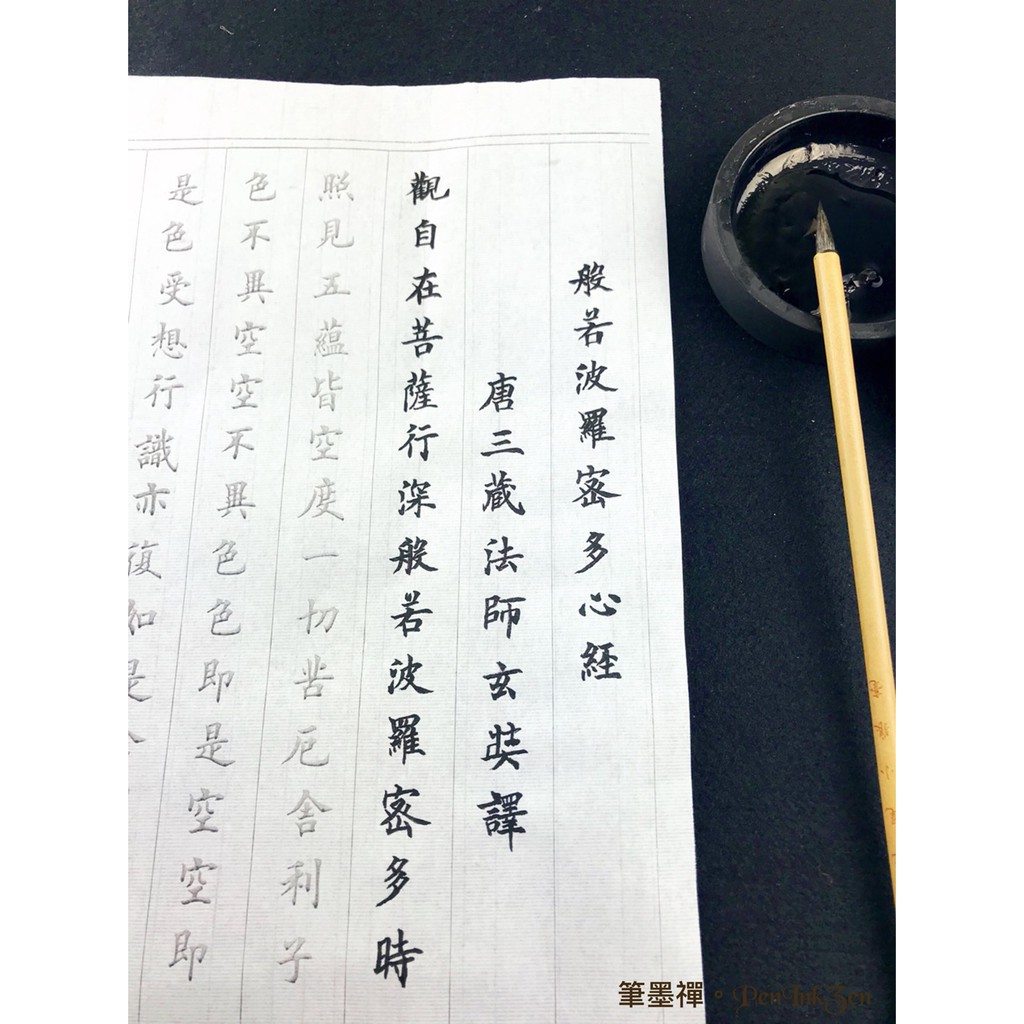 般若波羅蜜多心経
唐三蔵法師玄奘譯
觀自在菩薩行深般若波羅蜜多時
照見五蘊皆空度一切苦厄舍利子
色不異空空不異色色即是空空即
是色受想行識亦復如是
筆墨禪。Pen Ink Zen